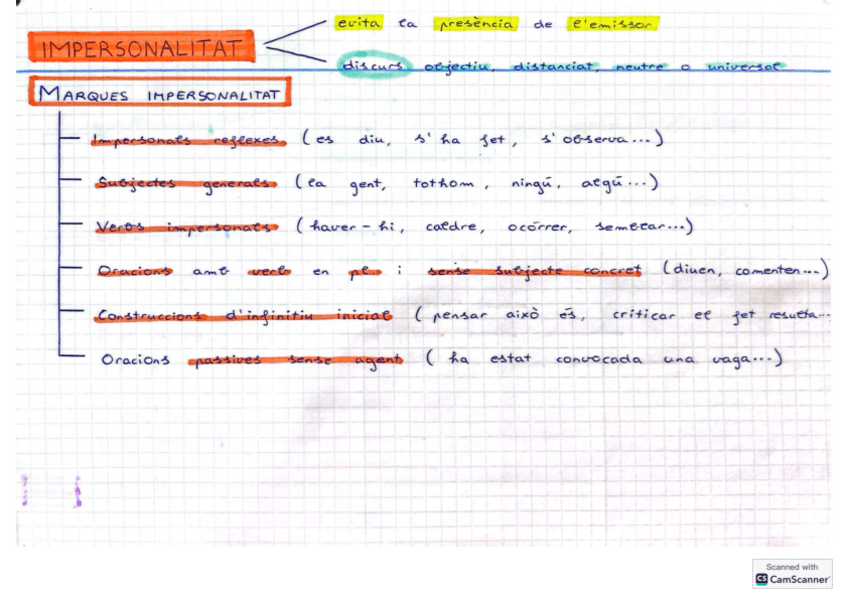 evita la presència de l'emissor
IMPERSONALITAT
discurs objectiu, distanciat, neutre o universal
MARQUES IMPERSONALITAT
Impersonals reflexes (es diu, s'ha fet, s'observa...)
Subjectes generals (la gent, tothom, ningú, algú...)
Verbs impersonals (haver-hi, caldre, ocórrer, semblar...)
Oracions amb verb en pl. i sense subjecte concret (diuen, comenten...)
Construccions d'infinitiu inicial (pensar això és, criticar el fet resulta...
Oracions passives sense agent (ha estat convocada una vaga...)
Scanned with
CS CamScanner